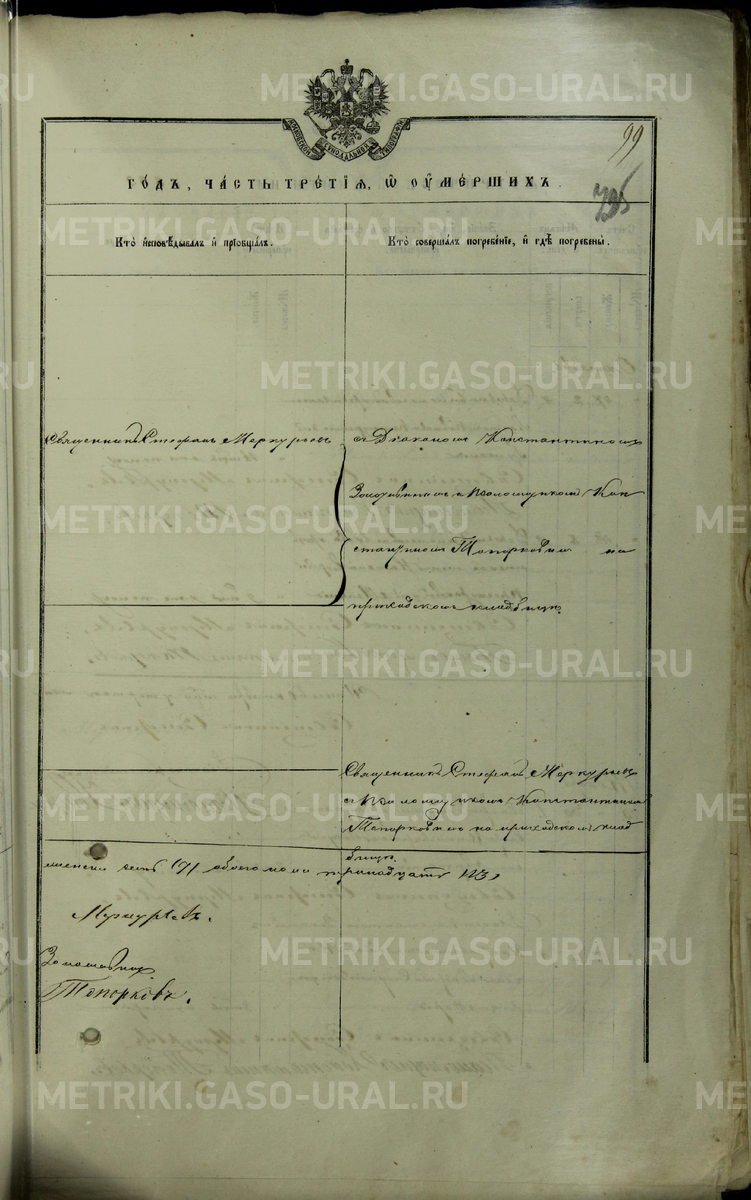 99
МОСКОВСКОЙ СѴНОДАЛЬНОЙ ТИПОГРАФІИ
ГОДЪ, ЧАСТЬ ТРЕТІЯ, Ѡ ОУМЕРШИХЪ.
Кто исповѣдывалъ и пріобщалъ.
Кто совершалъ погребеніе, и гдѣ погребены.
Священникъ Стефанъ Меркурьевъ
с Діакономъ Константиномъ
и Псаломщикомъ Кон
стантиномъ Топорковымъ на
приходскомъ кладбищѣ.
Священникъ Стефанъ Меркурьевъ
с Псаломщикомъ Константиномъ
Топорковымъ на приходскомъ клад
бищѣ.
женска семь (7) обоего пола тринадцать (13)
Меркурьевъ.
Топорковъ.
METRIKI.GASO-URAL.RU